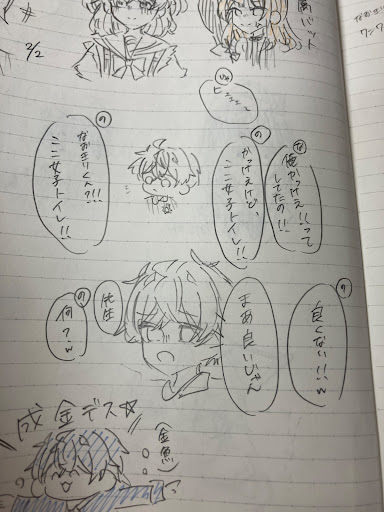 2/2
な
俺かっけぇ!!って
してたの!!
の
かっけぇけど、
ここ女子トイレ!!
の
なおきりくん?!!
ここ女子トイレ!!
の
良くない!!w
まあ良いじゃん
先生
の
何?w
成金デス☆
(金魚)